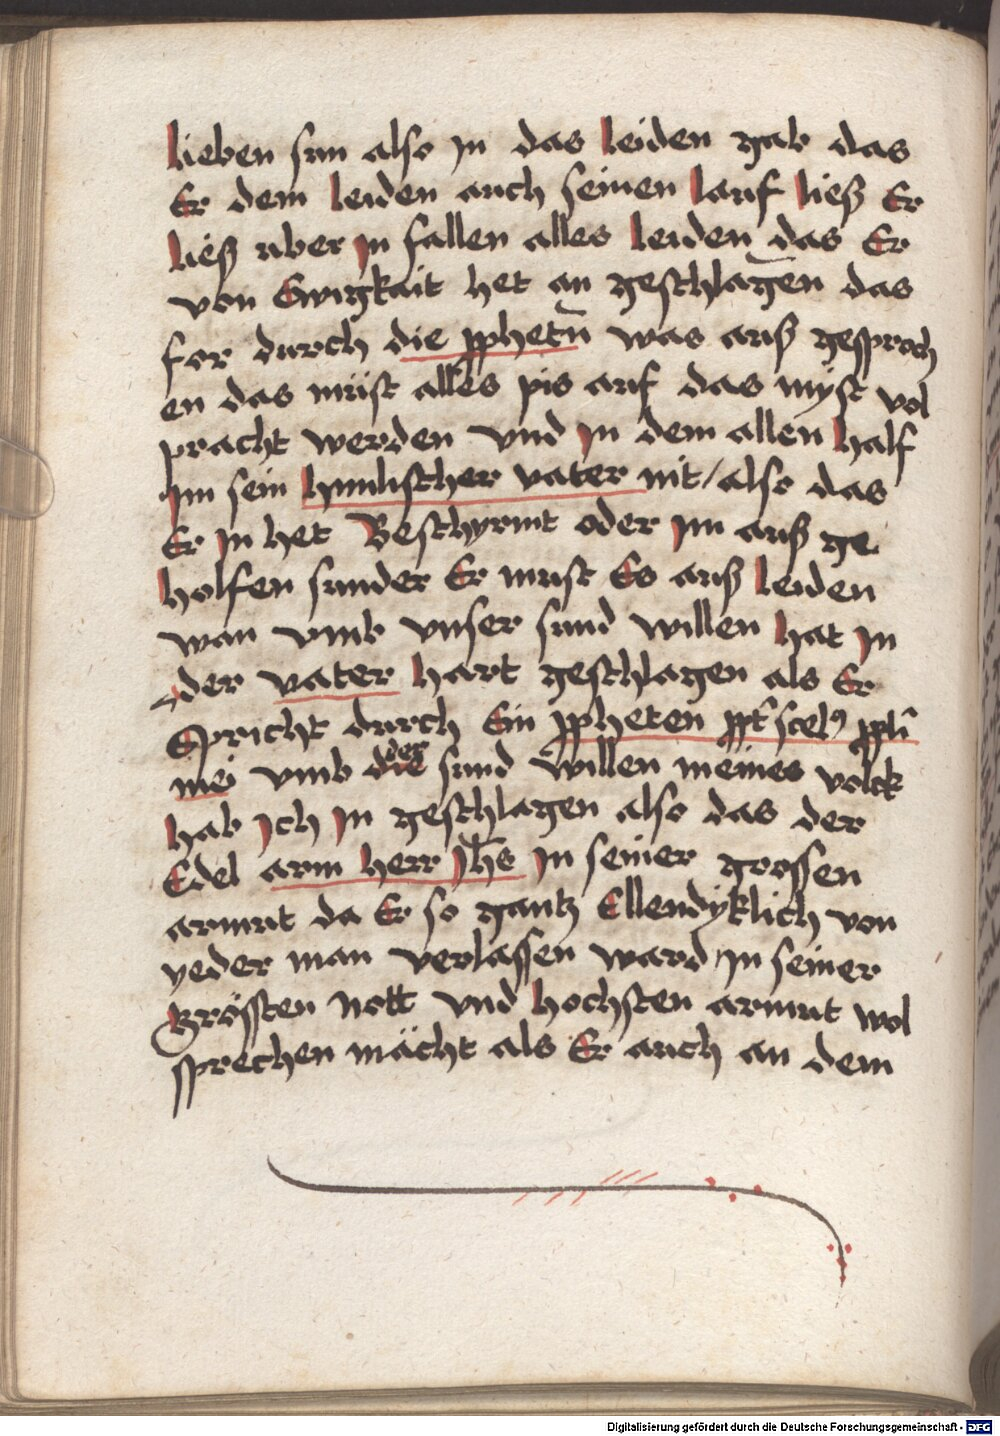 lieben sun also in das leiden gab das
Er dem leiden auch seinen lauf ließ Er
ließ uber in fallen alles leiden das Er
von Ewigkait het an geschlagen das
for durch die ꝓphetn̄ was auß gesproch
en das müst alles pis auf das myst vol
pracht werden vnd in dem allen half
im sein himlischer vater nit / also das
Er in het Beschyrmt oder im auß ge
holfen sunder Er must Es auß leiden
wan vmb vnser sund willen hat in
der vater hart geschlagen als Er
Spricht durch Ein ꝓpheten ꝓpt̄ scelꝰ ppli
mei vmb die der sund willen meines volck
hab ich in geschlagen also das der
Edel arm herr Jhs in seiner grossen
armut da Er so gantz Ellendyklich von
yeder man verlassen ward in seiner
Grösten nott vnd hochsten armut wol
sprechen mächt als Er auch an dem
Digitalisierung gefördert durch die Deutsche Forschungsgemeinschaft - DFG